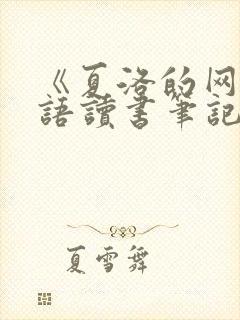 《夏洛的网
語讀書筆記
夏雪舞